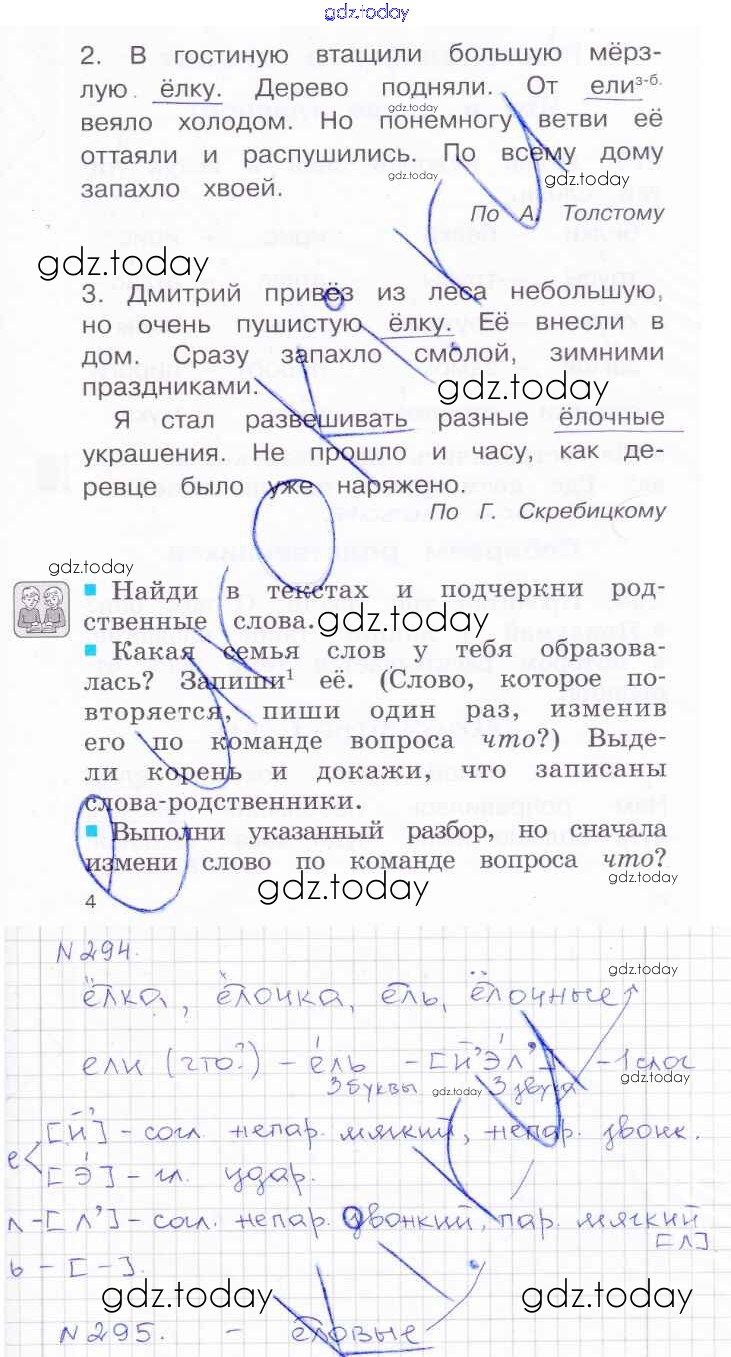 gdz.today
2. В гостиную втащили большую мёрз-
лую ёлку. Дерево подняли. От ели з-б.
gdz.today
веяло холодом. Но понемногу ветви её
оттаяли и распушились. По всему дому
gdz.today
gdz.today
запахло хвоей.
По А. Толстому
gdz.today
3. Дмитрий привёз из леса небольшую,
но очень пушистую ёлку. Её внесли в
дом. Сразу запахло смолой, зимними
праздниками.
gdz.today
Я стал развешивать разные ёлочные
украшения. Не прошло и часу, как де-
ревце было уже наряжено.
По Г. Скребицкому
gdz.today
Найди в текстах и подчеркни род-
ственные слова.
gdz.today
Какая семья слов у тебя образова-
лась? Запиши¹ её. (Слово, которое по-
вторяется, пиши один раз, изменив
его по команде вопроса что?) Выде-
ли корень и докажи, что записаны
слова-родственники.
Выполни указанный разбор, но сначала
измени слово по команде вопроса что?
4
gdz.today
gdz.today
N 294.
gdz.today
ёлка, ёлочка, ель, ёлочные
ели (что?) – ель – [й’э́л’] – 1 слог
gdz.today
3 буквы gdz.today 3 звука
е [й’] – согл. непар. мягкий, непар. звонк.
[э́] – гл. удар.
л – [л’] – согл. непар. звонкий, пар. мягкий
[л]
ь – [–].
gdz.today
gdz.today
N 295. – ёловые